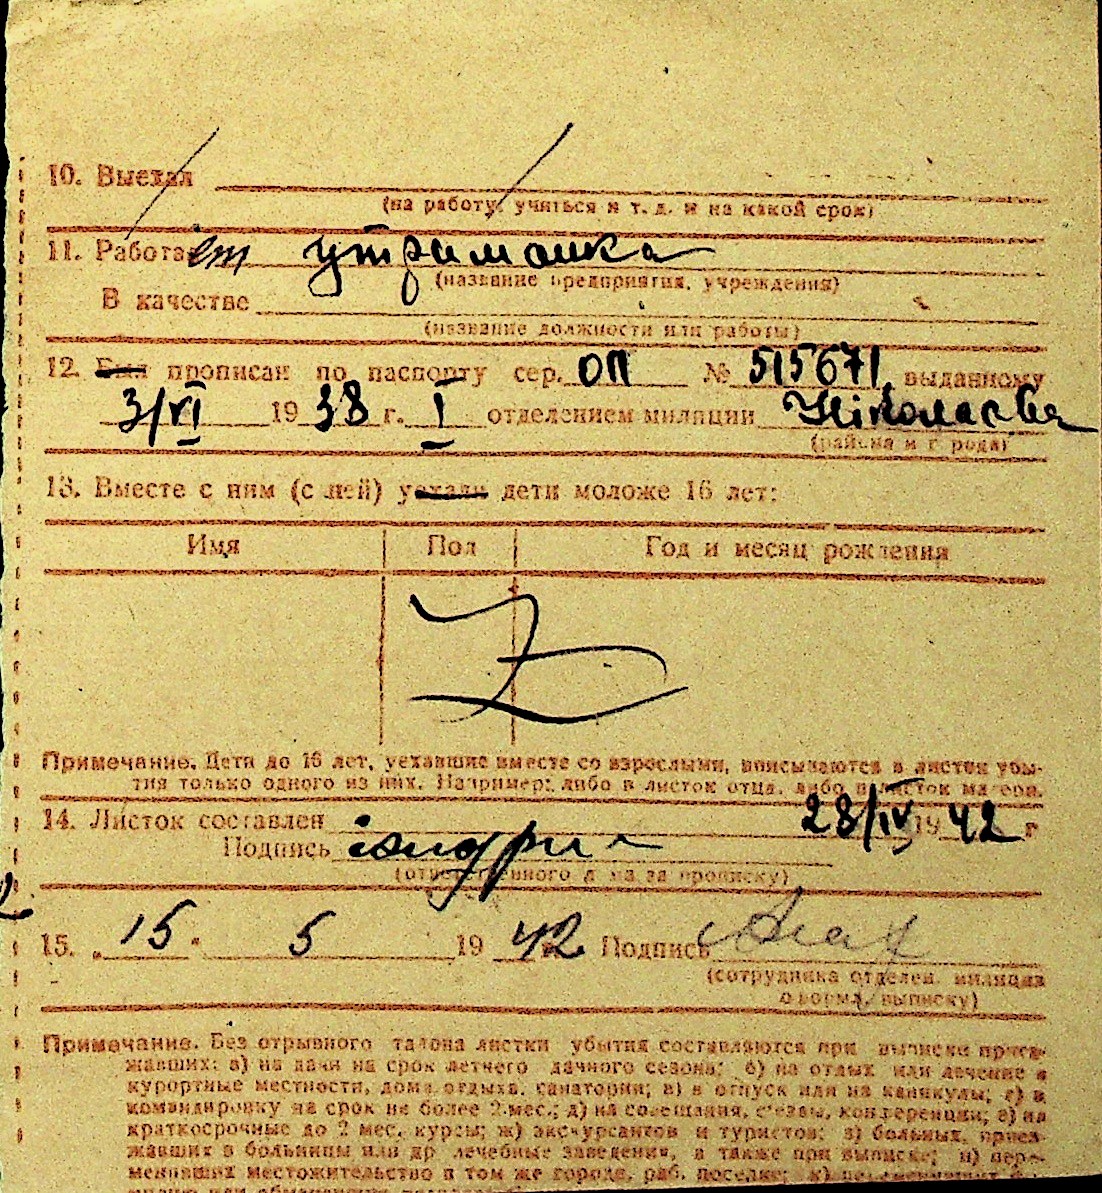 10. Выехал
(на работу, учиться и т. д. и на какой срок)
11. Работает утриманка
(название предприятия, учреждения)
В качестве
(название должности или работы)
12. Был прописан по паспорту сер. ОП № 515671, выданному
3/VI 1938 г. I отделением милиции Ніколаєва
(района и города)
13. Вместе с ним (с ней) уехали дети моложе 16 лет:
Имя Пол Год и месяц рождения
Примечание. Дети до 16 лет, уехавшие вместе со взрослыми, вписываются в листок убы-
тия только одного из них. Например: либо в листок отца, либо в листок матери.
14. Листок составлен 28/IV 1942 г
Подпись
(ответственного за прописку)
15. „15" 5 1942 Подпись
(сотрудника отделен. милиции
оформл. выписку)
Примечание. Без отрывного талона листки убытия составляются при выписке приез-
жавших: а) на дачи на срок летнего дачного сезона; б) на отдых или лечение в
курортные местности, дома отдыха, санатории; в) в отпуск или на каникулы; г) в
командировку на срок не более 2 мес.; д) на совещания, с'езды, конференции; е) на
краткосрочные до 2 мес. курсы; ж) экскурсантов и туристов; з) больных, приез-
жавших в больницы или др лечебные заведения, а также при выписке; и) пере-
менивших местожительство в том же городе, раб. поселке;